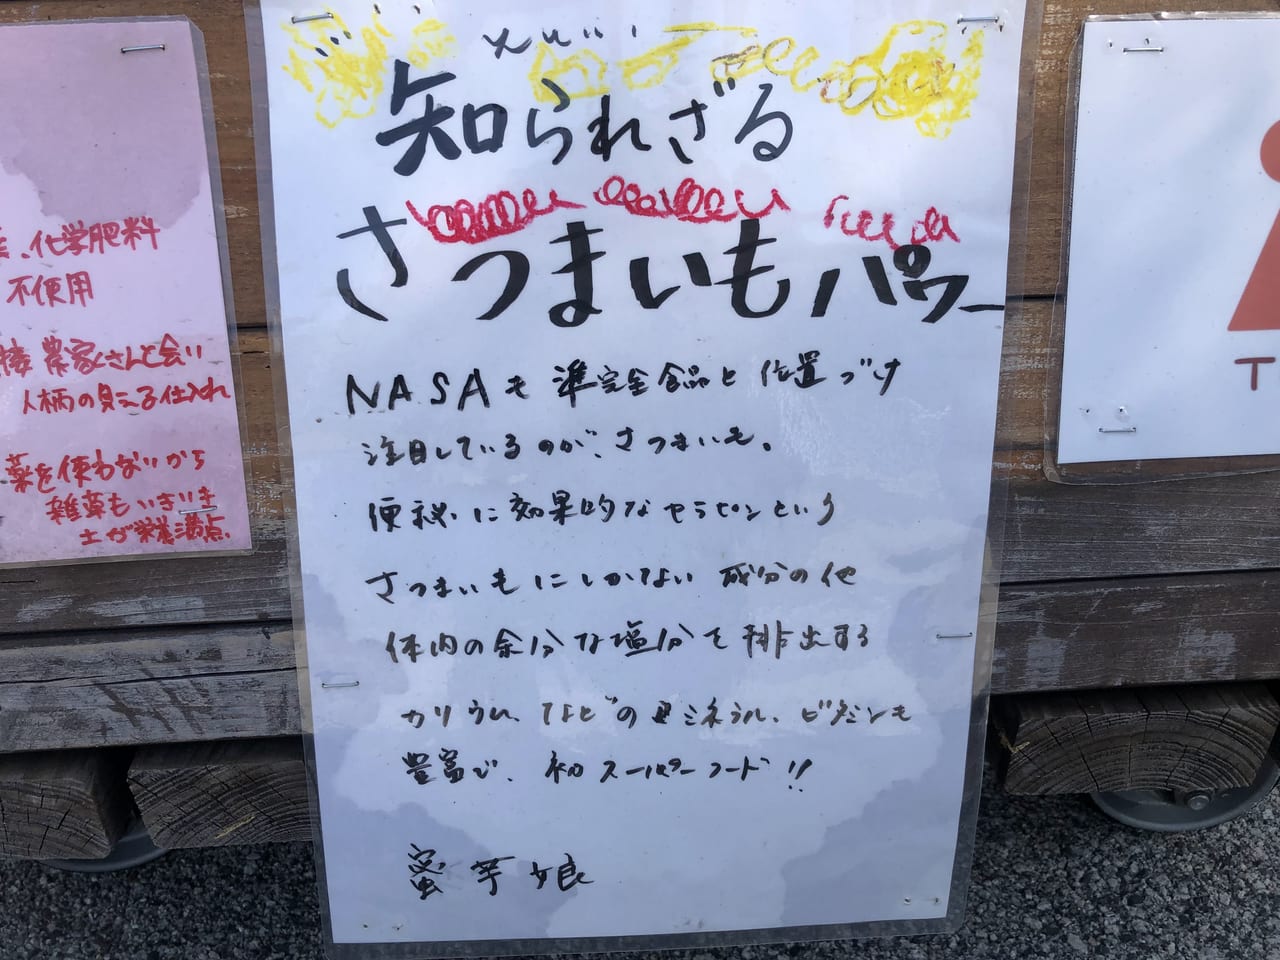 化学肥料
不使用
農家さんと会い
人柄の見える仕入れ
薬を使わないから
雑草もいきいき
土が栄養満点
知られざる
さつまいもパワー
NASAも準完全食品と位置づけ
注目しているのが、さつまいも。
便秘に効果的なセラピンという
さつまいもにしかない成分の他
体内の余分な塩分を排出する
カリウム、などのミネラル、ビタミンも
豊富で、初スーパーフード!!
蜜芋娘
T